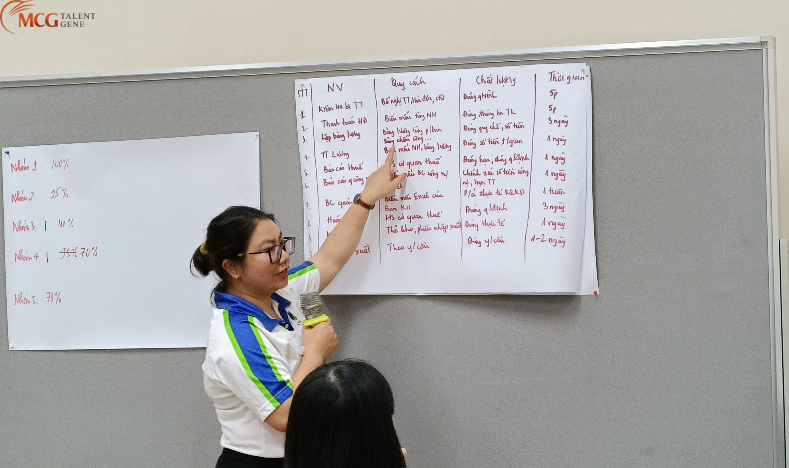 MCG TALENT
GENE
Nhóm 1: 100%
Nhóm 2: 95%
Nhóm 3:
Nhóm 4: 70%
Nhóm 5: 78%
STT NV Quy cách Chất lượng Thời gian
1. Kiểm tra bộ TT Đề nghị TT, hóa đơn, Đúng q.trình 5p
2. Thanh toán HĐ Biểu mẫu từng NH Đúng thông tin TK 5p
3. Lập bảng lương Bảng lương từng p/ban Đúng quy chế, số tiền 3 ngày
Bảng chấm công...
TT Lương mẫu NH, bảng lương Đúng số tiền, t/gian 1 ngày
Báo cáo thuế cơ quan thuế Đúng hạn, đúng q/định 1 ngày
Báo cáo BC Chính xác số tiền 1 ngày
BC quản mẫu Excel của P/á thực tế KQKD 1 tuần
Ban
Hs cơ quan thuế Đúng q/định 3 ngày
Thẻ kho, phiếu nhập xuất Đúng thực tế 1 ngày
xuất Theo y/cầu Đúng y/cầu 1-2 ngày